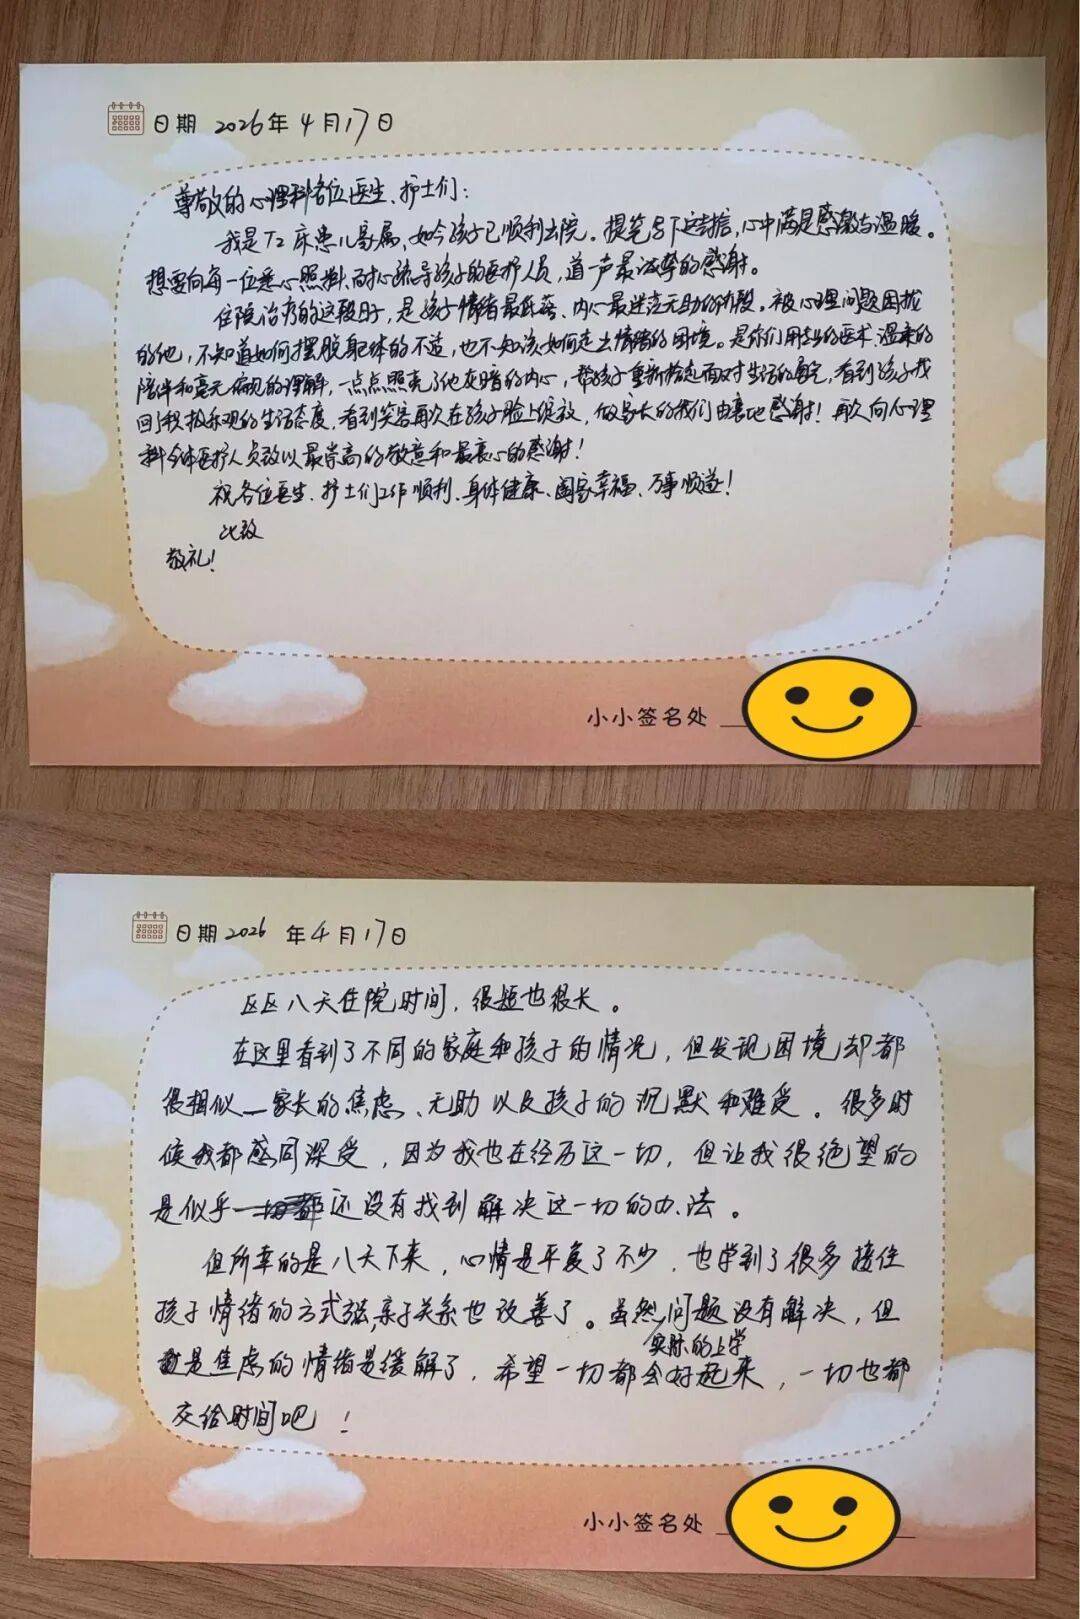 日期 2026年4月17日
尊敬的心理科各位医生、护士们：
我是72床患儿家属，如今孩子已顺利出院。提笔写下这封信，心中满是感激与温暖。
想要向每一位悉心照料、耐心疏导孩子的医护人员，道一声最诚挚的感谢。
住院治疗的这段日子，是孩子情绪最低落、内心最迷茫无助的时段。被心理问题困扰
的他，不知道如何摆脱躯体的不适，也不知该如何走出情绪的困境。是你们用专业的医术、温柔的
陪伴和毫无偏见的理解，一点点照亮了他灰暗的内心，帮孩子重新拾起面对生活的勇气，看到孩子找
回了积极乐观的生活态度，看到笑容再次在孩子脸上绽放，做家长的我们由衷地感谢！再次向心理
科全体医护人员致以最崇高的敬意和最衷心的感谢！
祝各位医生、护士们工作顺利、身体健康、阖家幸福、万事顺遂！
此致
敬礼！
小小签名处
日期 2026 年4月17日
区区八天住院时间，很短也很长。
在这里看到了不同的家庭和孩子的情况，但发现困境却都
很相似—家长的焦虑、无助以及孩子的沉默和难受。很多时
候我都感同深受，因为我也在经历这一切，但让我很绝望的
是似乎还没有找到解决这一切的办法。
但所幸的是八天下来，心情是平复了不少，也学到了很多接住
孩子情绪的方式，亲子关系也改善了。虽然实际的上学问题没有解决，但
是焦虑的情绪是缓解了，希望一切都会好起来，一切也都
交给时间吧！
小小签名处